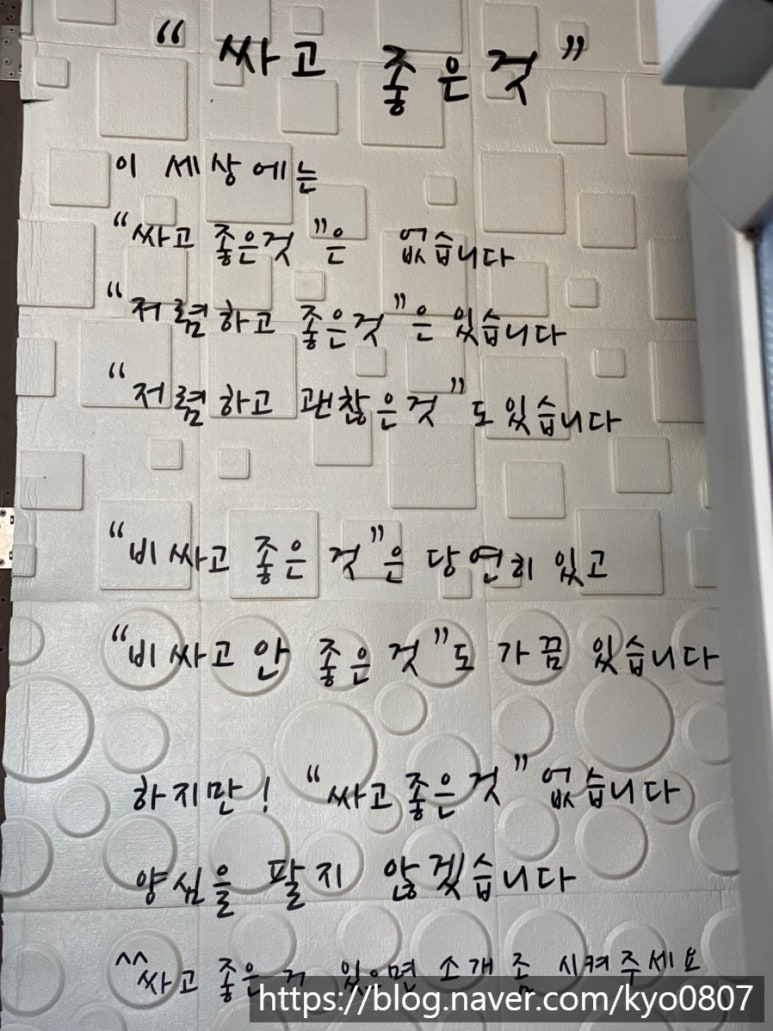 “ 싸고 좋은것 ”
이 세상에는
“싸고 좋은것”은 없습니다
“저렴하고 좋은것”은 있습니다
“저렴하고 괜찮은것”도 있습니다
“비싸고 좋은 것”은 당연히 있고
“비싸고 안 좋은 것”도 가끔 있습니다
하지만! “싸고 좋은것” 없습니다
양심을 팔지 않겠습니다
^^싸고 좋은 것 있으면 소개 좀 시켜주세요
https://blog.naver.com/kyo0807